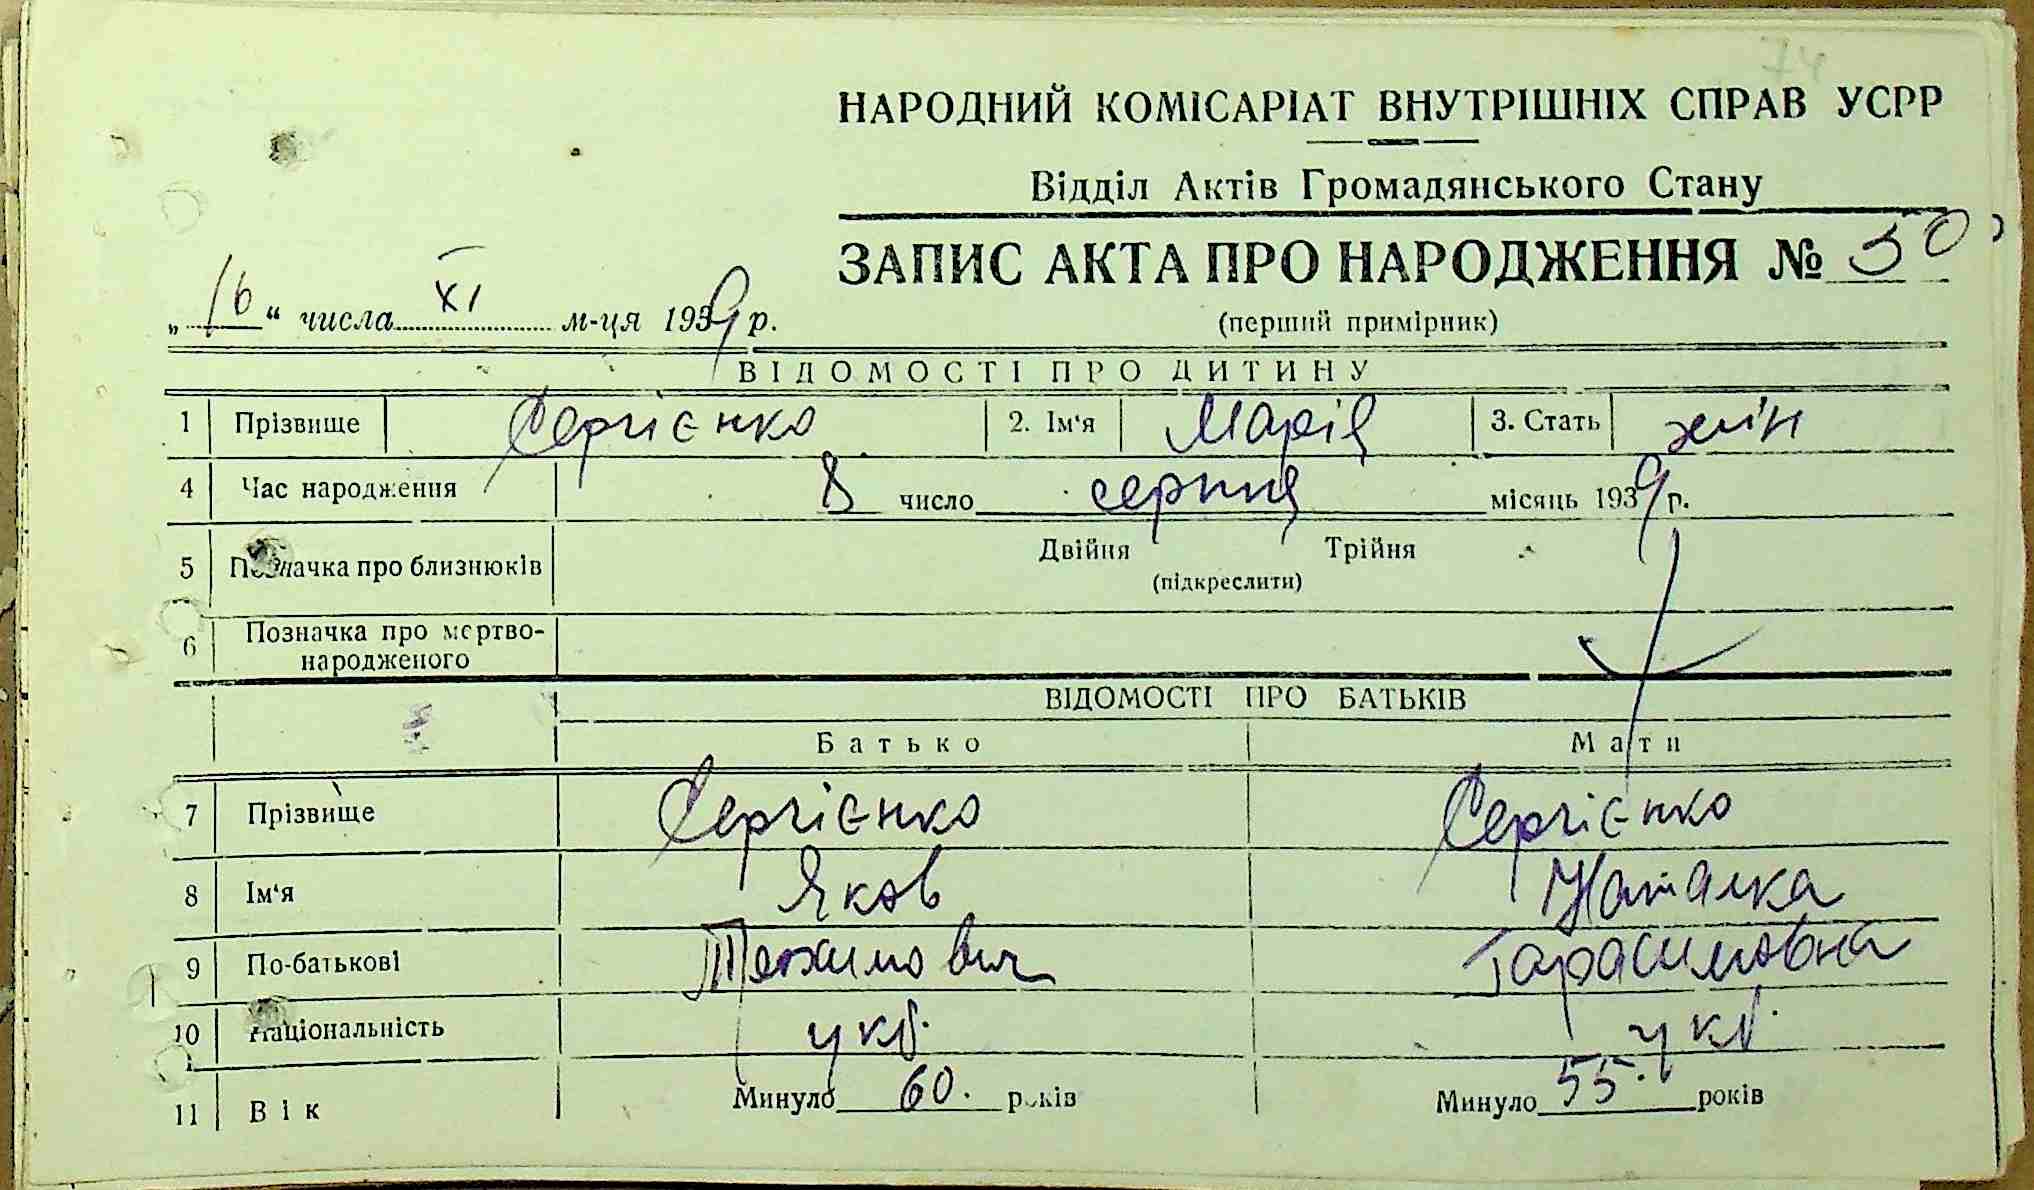 74
НАРОДНИЙ КОМІСАРІАТ ВНУТРІШНІХ СПРАВ УСРР
Відділ Актів Громадянського Стану
ЗАПИС АКТА ПРО НАРОДЖЕННЯ № 50
„16“ числа XI м-ця 1939 р.
(перший примірник)
ВІДОМОСТІ ПРО ДИТИНУ
1 Прізвище Сергієнко 2. Ім‘я Марія 3. Стать жін
4 Час народження 8 число серпня місяць 1939 р.
5 Позначка про близнюків Двійня Трійня
(підкреслити)
6 Позначка про мертво-
народженого
ВІДОМОСТІ ПРО БАТЬКІВ
Батько Мати
7 Прізвище Сергієнко Сергієнко
8 Ім‘я Яков Наталка
9 По-батькові Гарасимовна
10 Національність укр. укр.
11 Вік Минуло 60. років Минуло 55. років